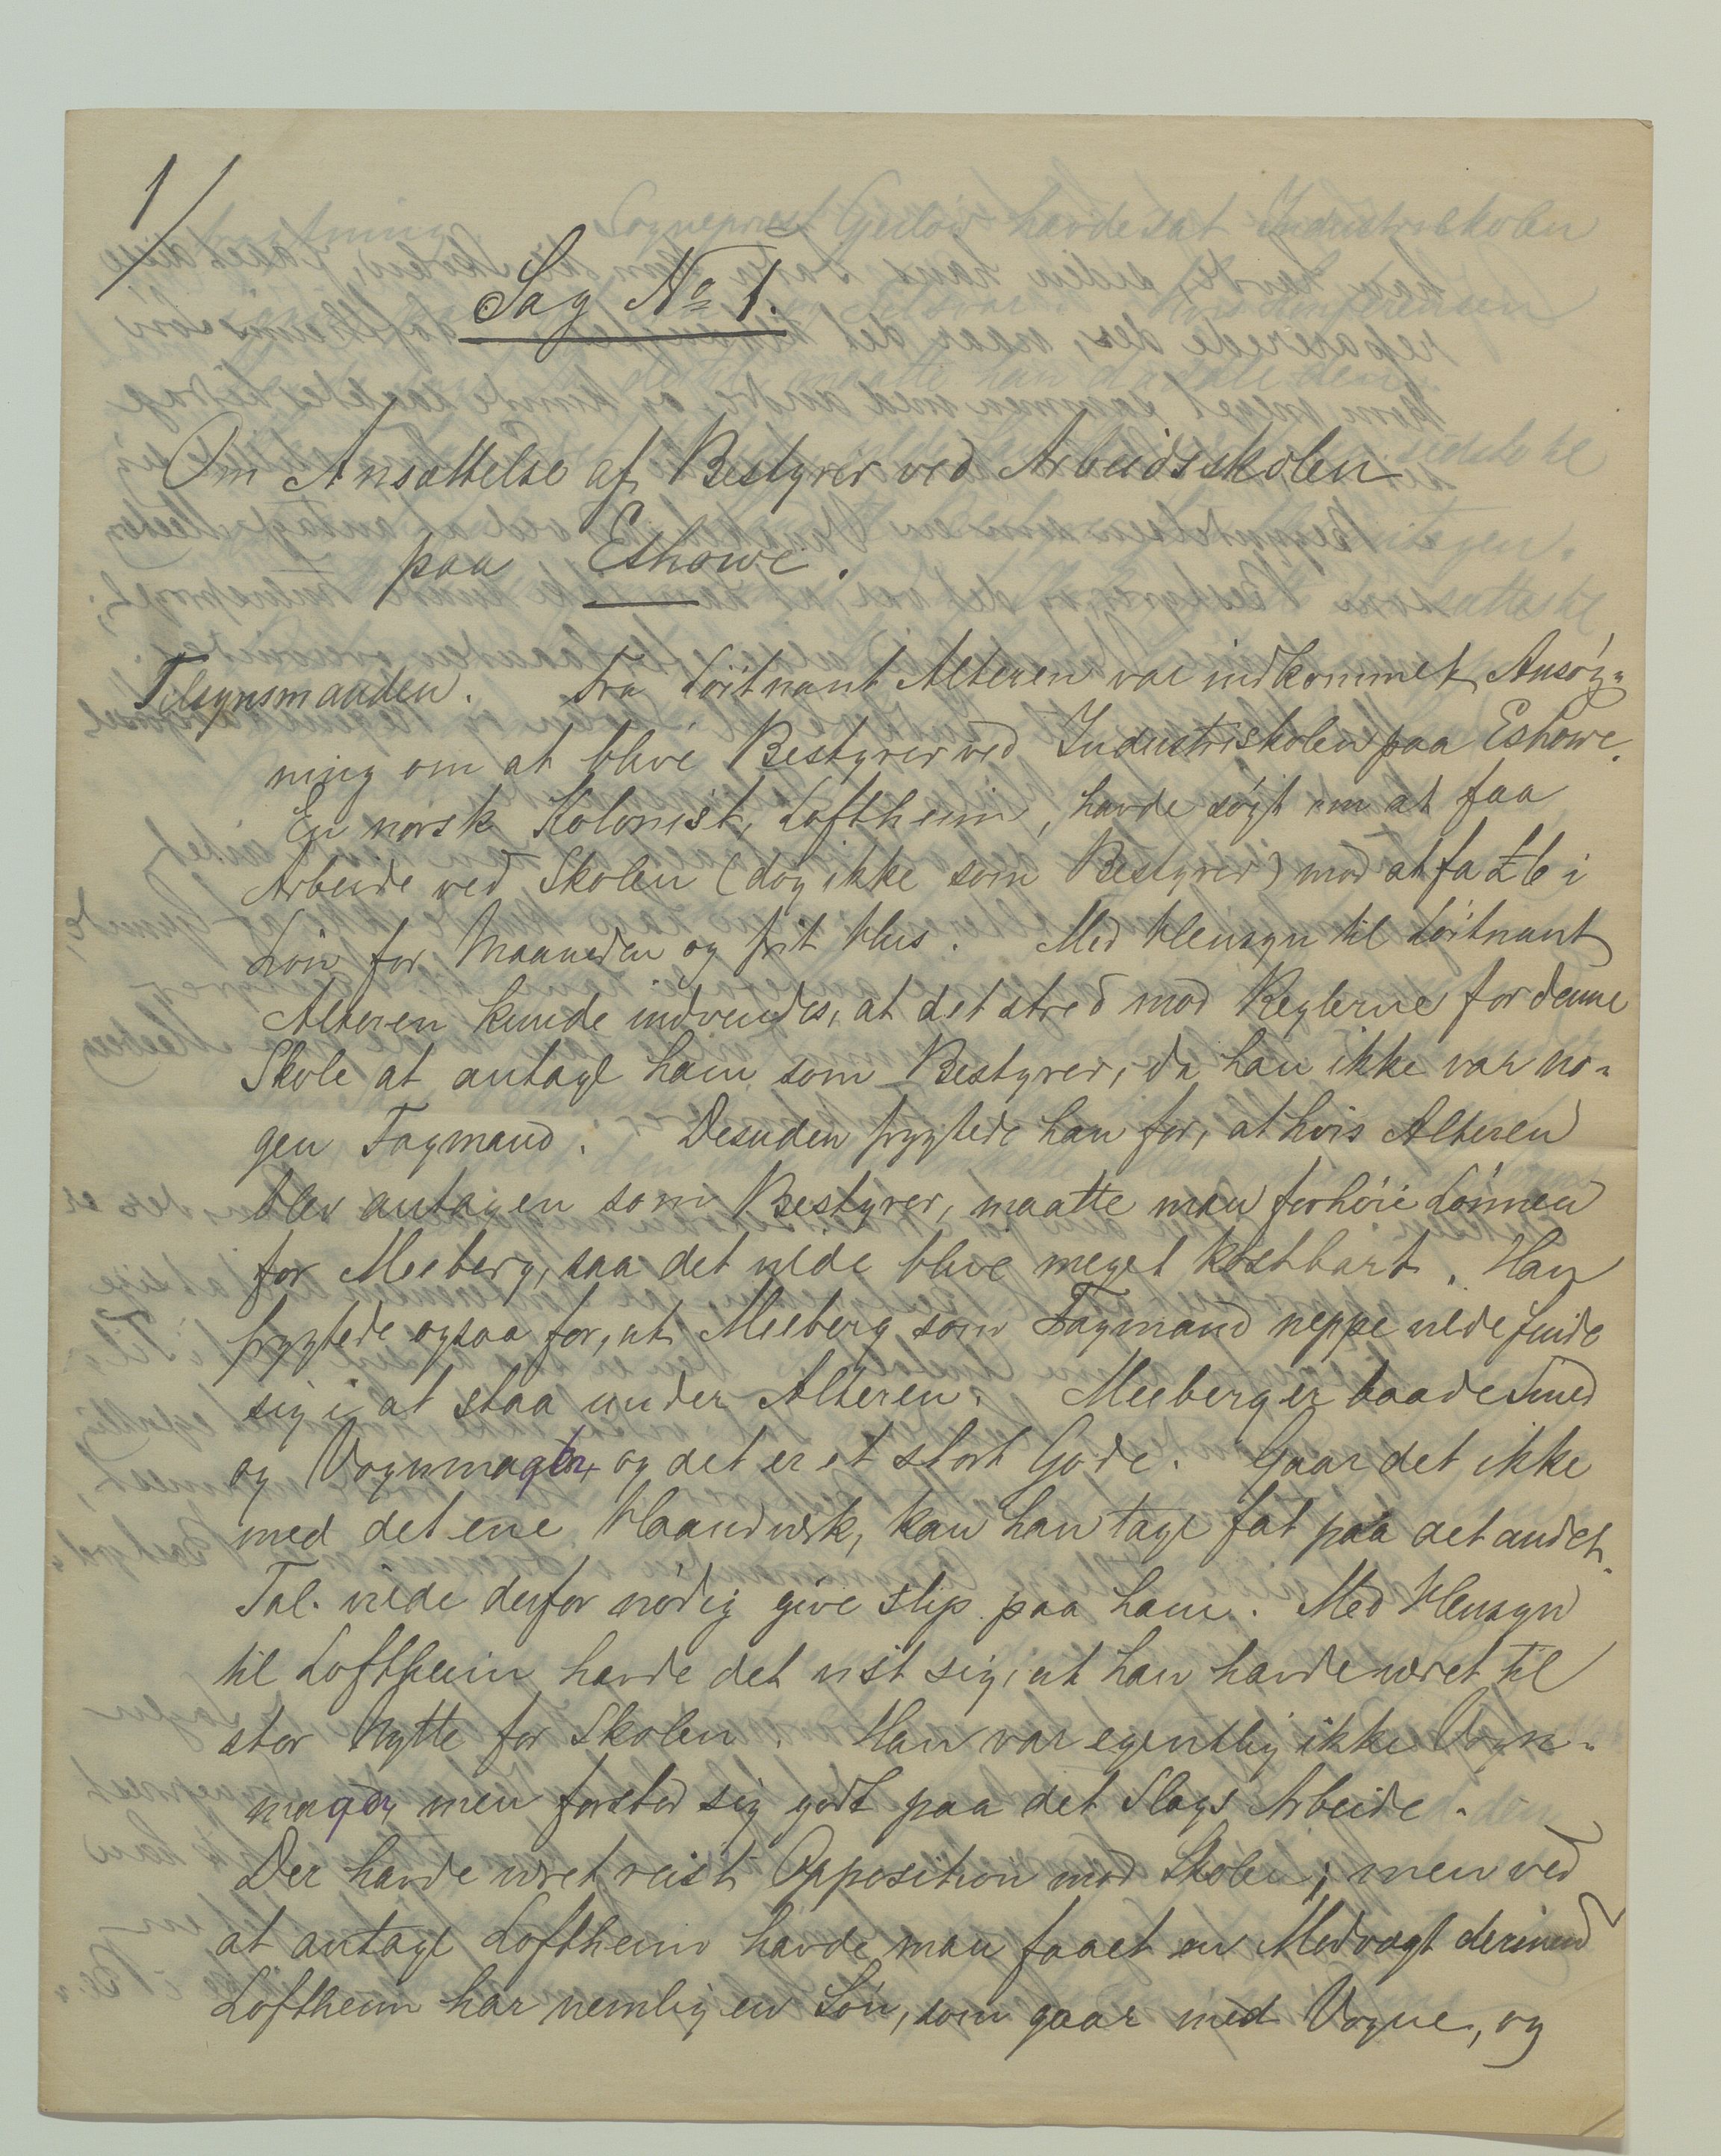 1/
Sag No 1.
Om Ansættelse af Bestyrer ved Arbeidsskolen
paa Eshowe.
Tilsynsmanden. Fra Löitnant Alteren var indkommet Ansög-
ning om at blive Bestyrer ved Industriskolen paa Eshowe.
En norsk Kolonist, Loftheim, havde søgt om at faa
Arbeide ved Skolen (dog ikke som Bestyrer) mod at fa £6 i
Lön for Maaneden og frit Hus. Med Hensyn til Löitnant
Alteren kunde indvendes, at det stred mod Reglerne for denne
Skole at antage ham som Bestyrer, da han ikke var no-
gen Fagmand. Desuden frygtede han for, at hvis Alteren
blev antagen som Bestyrer, maatte man forhöie Lönnen
for Meeberg, saa det vilde blive meget kostbart. Han
frygtede ogsaa for, at Meeberg som Fagmand neppe vilde finde
sig i at staa under Alteren. Meeberg er baade Smed
og Vognmager, og det er et stort Gode. Gaar det ikke
med det ene Haandværk, kan han tage fat paa det andet.
Tal. vilde derfor nödig give slip paa ham. Med Hensyn
til Loftheim havde det vist sig, at han havde været til
stor Nytte for Skolen. Han var egentlig ikke Vogn-
mager, men forstod sig godt paa det Slags Arbeide.
Der havde været reist Opposition mod Skolen; men ved
at antage Loftheim havde man faaet en Modvægt derimod
Loftheim har nemlig en Sön, som gaar med Vogne, og